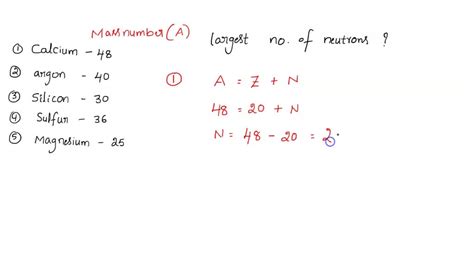 Mass number (A)
largest no. of neutrons ?
① Calcium – 48
② argon – 40
③ Silicon – 30
④ Sulfur – 36
⑤ Magnesium – 25
① A = Z + N
48 = 20 + N
N = 48 – 20 = 2